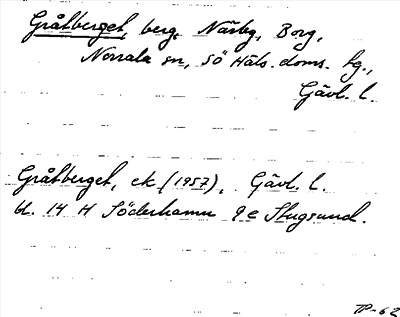 Gråtberget, berg, Närby, Borg,
Norrala sn, Sö Häls. doms. tg.,
Gävl. l.
Gråtberget, ek (1957), Gävl. l.
bl. 14 H Söderhamn 9 e Stugsund.
TP-62